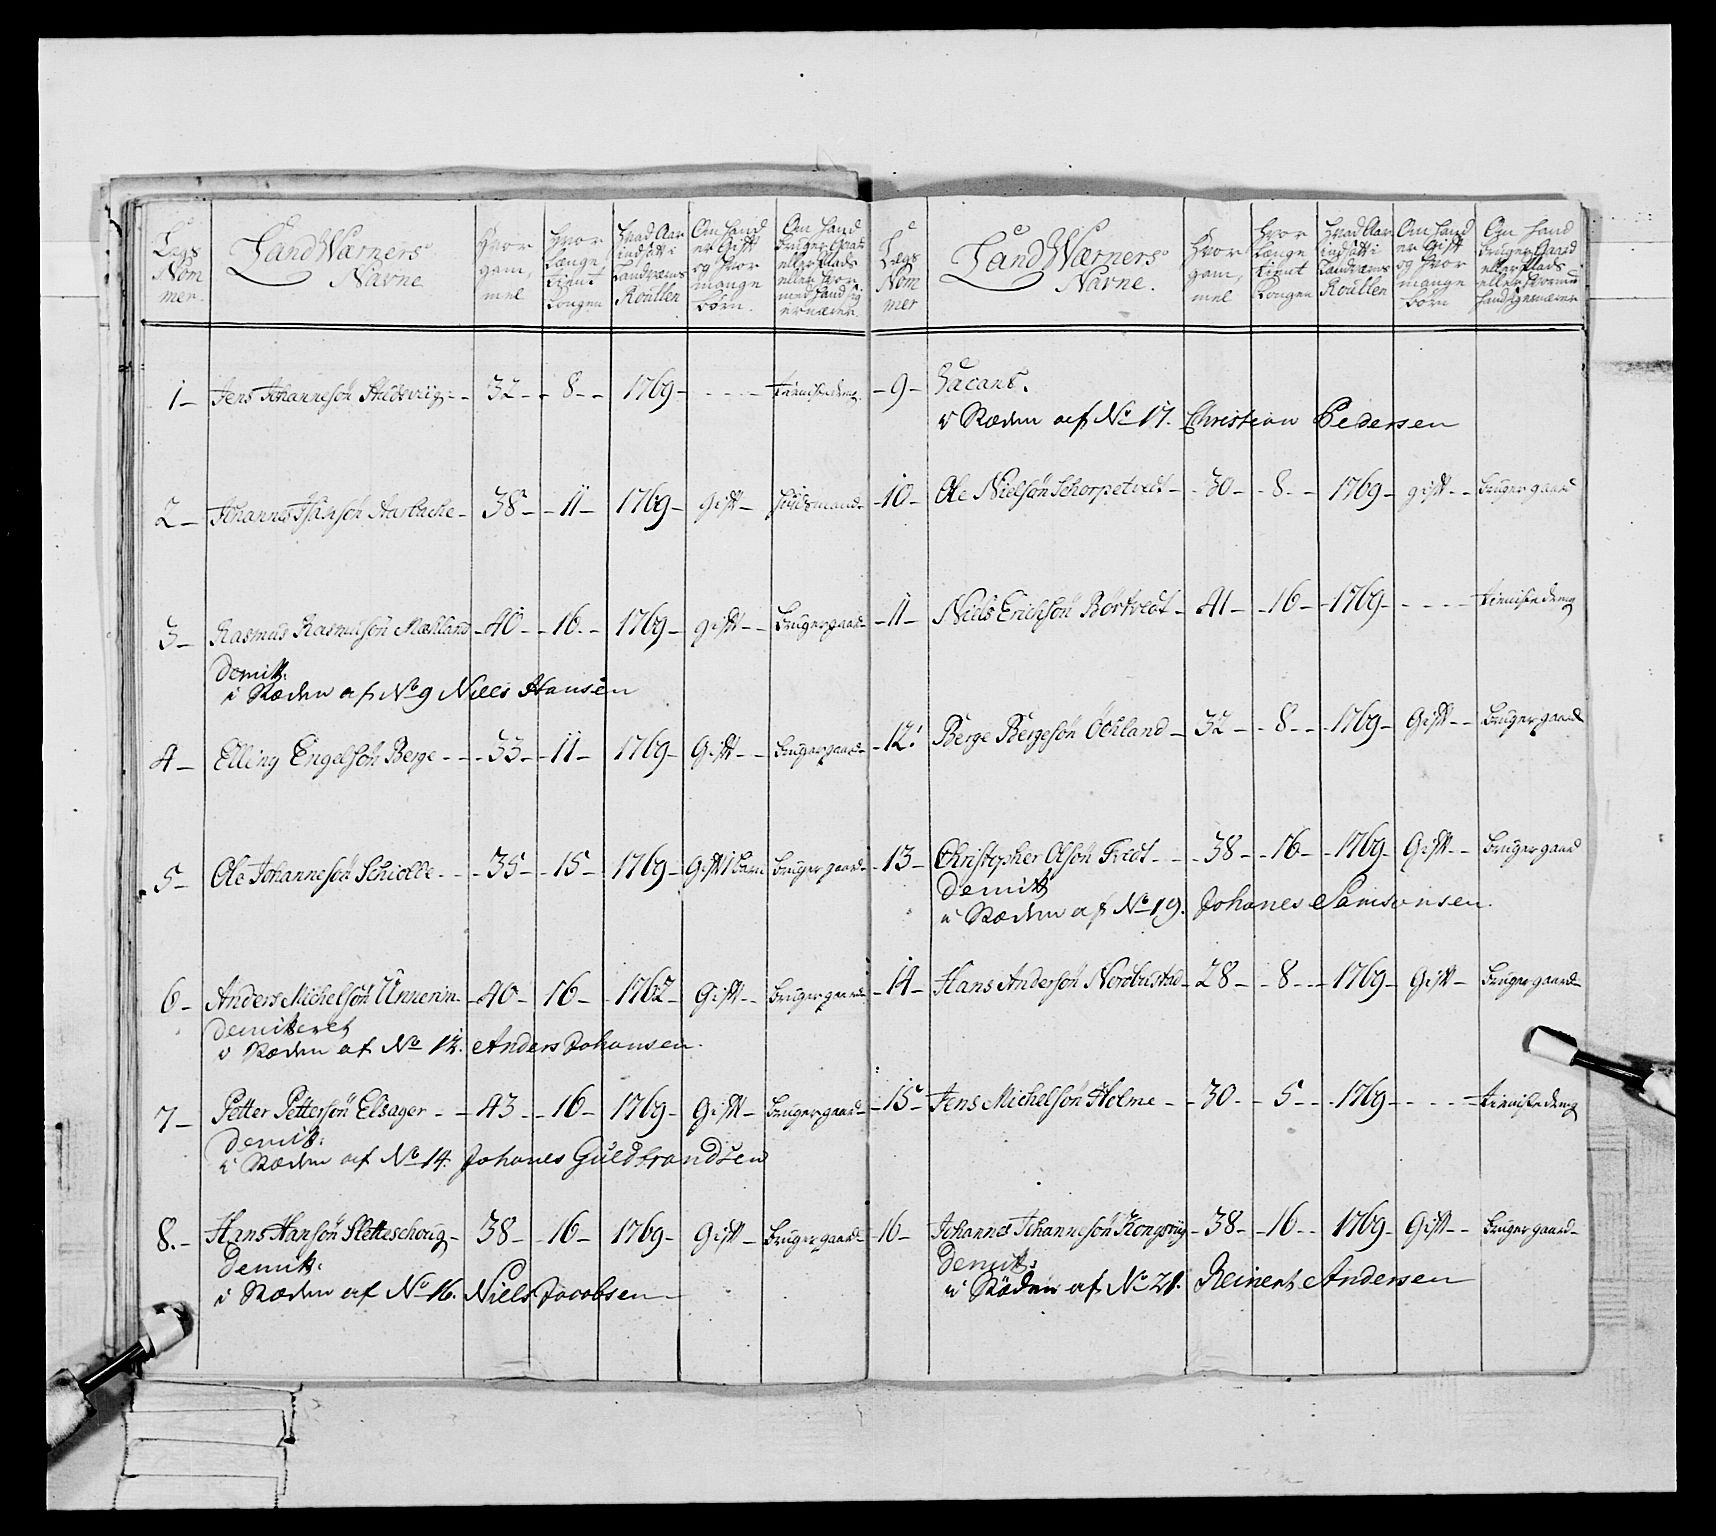 Legs Nom mer.
Land Wærners Navne
Hvor gam, mel
Hvor længe tient Kongen
Hvad Aar indsatt i Landværns Roullen
Om Hand er Gift og hvor mange börn.
Om Hand bruger Gaard eller Plads eller hvor med hand sig ernærer.
1 - Jens Johannesön - 32 - 8 - 1769 - - - - tienistedreng
2 - Johannes Aarbache - 38 - 11 - 1769 - Gift - huusmand
3 - Rasmus Rasmusön Mæhland - 40 - 16 - 1769 - gift - bruger gaard
Demitt:
i Stæden af No 9 Niels Hansen
4 - Elling Engelsön Berge - 33 - 11 - 1769 - Gift - bruger gaard
5 - Ole Johannesön Schiolde - 35 - 15 - 1769 - Gift 1 barn bruger gaard
6 - Anders Michelsön - 40 - 16 - 1762 - Gift - bruger gaard
Demitteret
i Stæden af No 12. Anders Johansen.
7 - Petter Pettersön Elsager - 43 - 16 - 1769 - Gift - bruger gaard
Demitt:
i Stæden af No 14. Johanes Guldbrandsen
8. - Hans Hansön Sletteschoug - 38 - 16 - 1769 - Gift - bruger gaard
Demitt:
i Stæden af No 16. Niels Jacobsen
Legs Nom mer
Land Wærners Navne.
Hvor gam, mel
Hvor længe tient Kongen
Hvad Aar indsatt i Landværns Roullen
Om Hand er Gift og hvor mange börn
Om Hand bruger Gaard eller Plads eller hvormed hand sig ernærer
- 9 - Vacant.
i Stæden af No 17. Christian Pedersen
- 10 - Ole Nielsön Schorpetvedt - 30 - 8 - 1769 - gift - bruger gaard
- 11 - Niels Erichsön Rörtvedt - 41 - 16 - 1769 - - - - tienistedreng
- 12. Berge Bergesön Öchland - 32 - 8 - 1769 - Gift - bruger gaard
- 13 - Christopher Olsön - 38 - 16 - 1769 - Gift - bruger gaard
Demitt
i Stæden af No 19. Johanes Samsonsen.
- 14 - Hans Andersön Nordbustad - 28 - 8 - 1769 - Gift - bruger gaard
- 15 - Jens Michelsön Holme - 30 - 5 - 1769 - - - - tienistedreng
16 - Johannes Johannesön Kongsviig - 38 - 16 - 1769 - Gift - bruger gaard
Demitt:
i Stæden af No 21. Reinert Andersen